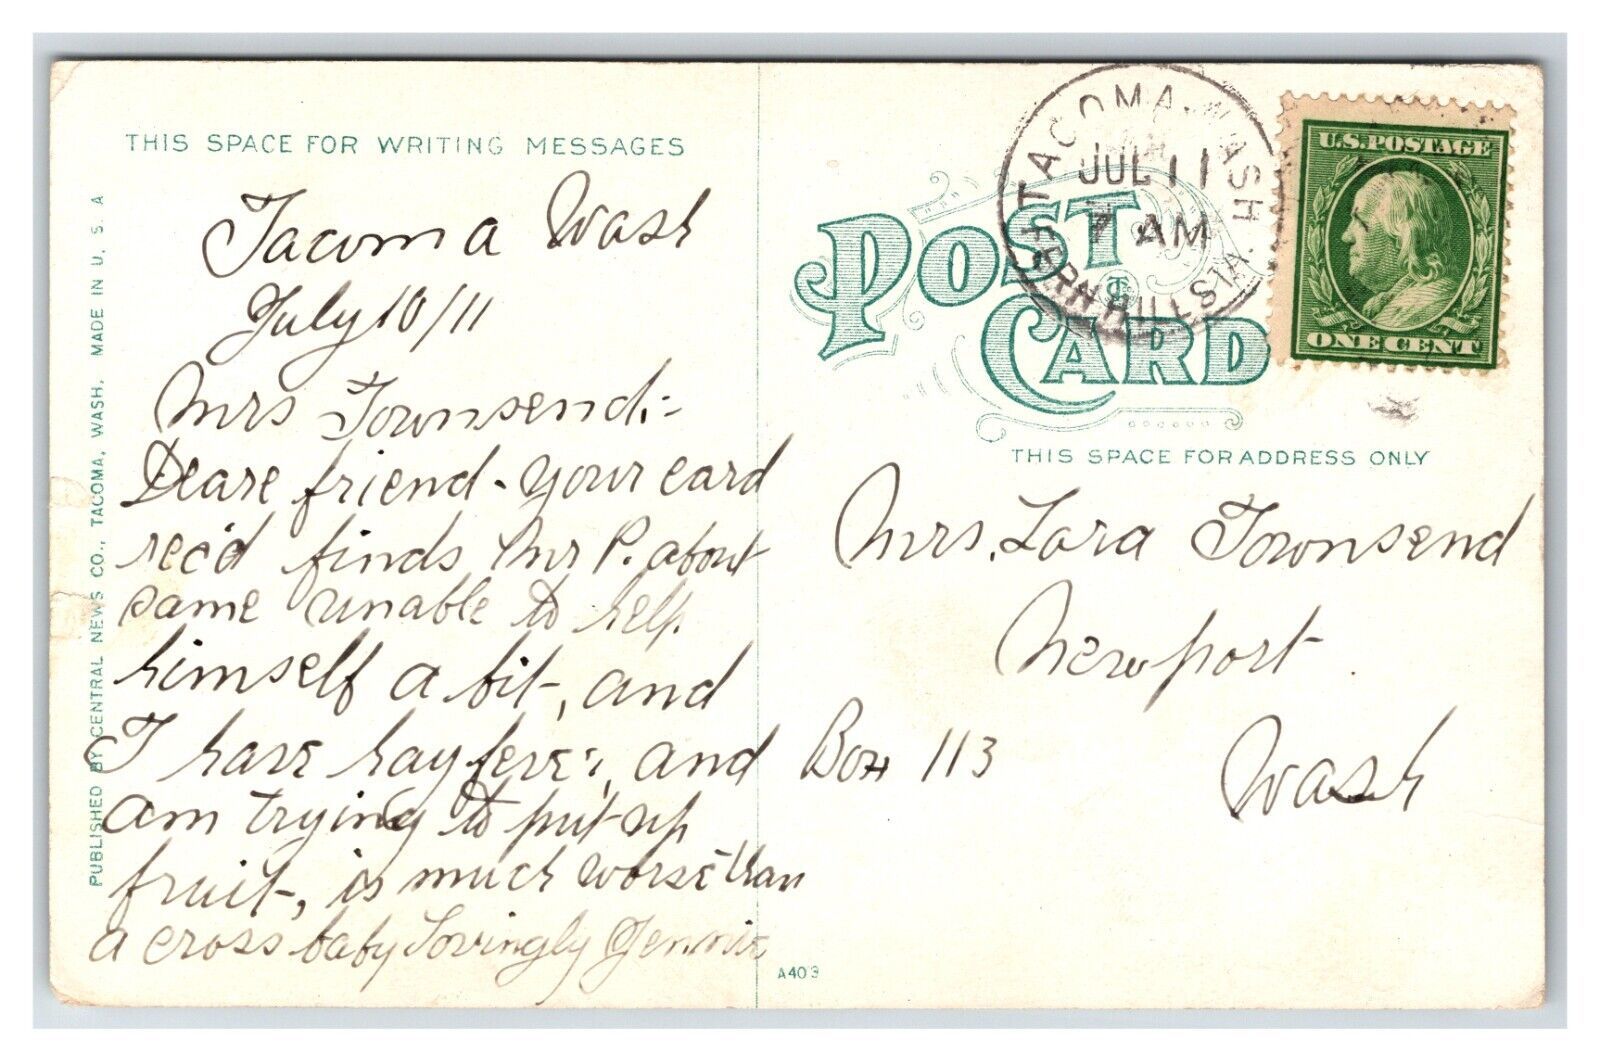 THIS SPACE FOR WRITING MESSAGES
Tacoma Wash
July 10/11
Mrs Townsend:-
Deare friend - your card
rec'd finds Mr P. about
same unable to help
himself a bit, and
I have hay fever, and
am trying to put up
fruit, is much worse than
a cross baby Lovingly Jennie
PUBLISHED BY CENTRAL NEWS CO., TACOMA, WASH. MADE IN U. S. A
POST CARD
TACOMA, WASH.
JUL 11
7 AM
FERN HILL STA
U.S. POSTAGE
ONE CENT
THIS SPACE FOR ADDRESS ONLY
Mrs. Lora Townsend
Newport
Box 113
Wash
A403